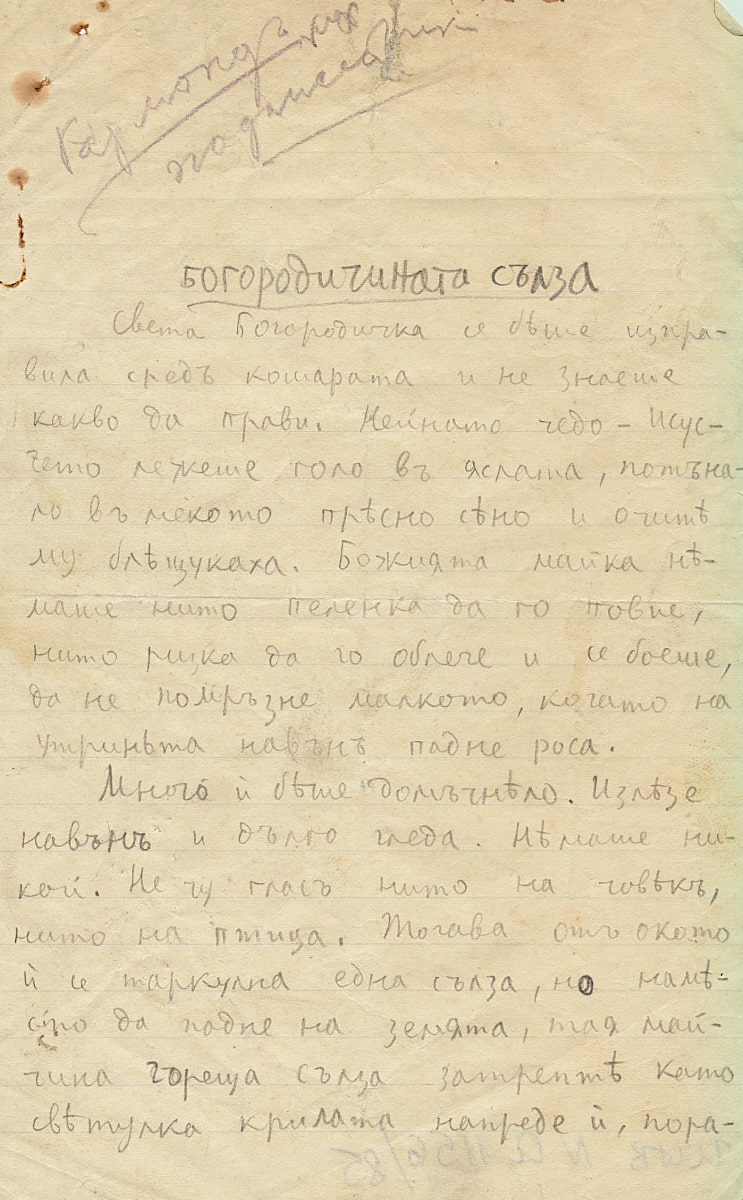 Гармонд
БОГОРОДИЧИНАТА СЪЛЗА
Света Богородичка се бѣше изпра-
вила средъ кошарата и не знаеше
какво да прави. Нейното чедо – Исус-
чето лежеше голо въ яслата, потъна-
ло въ мекото прѣсно сѣно и очитѣ
му блѣщукаха. Божията майка нѣ-
маше нито пеленка да го повие,
нито ризка да го облече и се боеше,
да не помръзне малкото, когато на
утриньта навънъ падне роса.
Много ѝ бѣше домъчнѣло. Излѣзе
навънъ и дълго гледа. Нѣмаше ни-
кой. Не чу гласъ нито на човѣкъ,
нито на птица. Тогава отъ окото
ѝ се търкулна една сълза, но намѣ-
сто да падне на земята, тая май-
чина гореща сълза затрептѣ като
свѣтулка крилата напреде ѝ, пора-